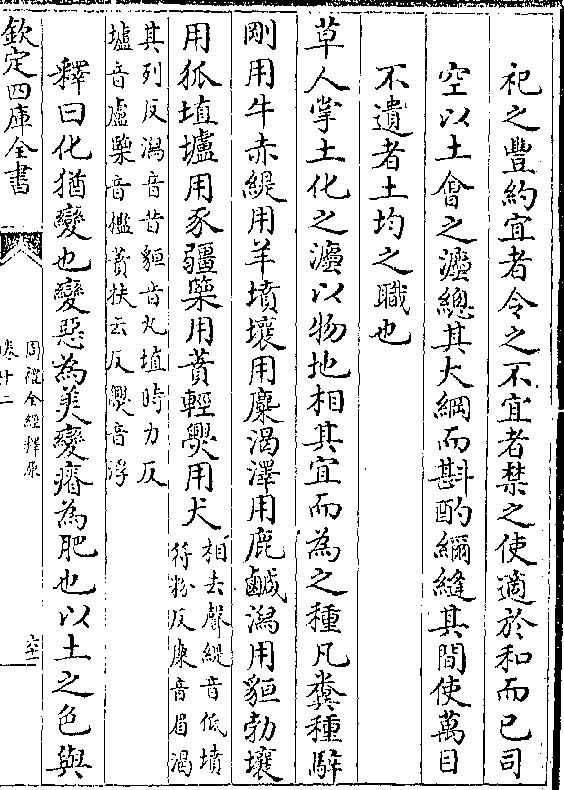 祀之豐約宜者令之不宜者禁之使適於和而已司
空以土會之灋總其大綱而斟酌緬縫其間使萬目
不遺者土均之職也
草人掌土化之灋以物地相其宜而為之種凡糞種騂
剛用牛赤緹用羊墳壤用麋渴澤用鹿鹹潟用貆勃壤
用狐埴壚用豕彊㯺用蕡輕㷿用犬相去聲緹音低墳
符粉反麋音眉渴
其列反潟音昔貆音丸埴時力反
壚音盧㯺音檻蕡扶云反㷿音浮
釋曰化猶變也變惡為美變瘠為肥也以土之色與
欽定四庫全書
周禮全經釋原
卷十二
六十一